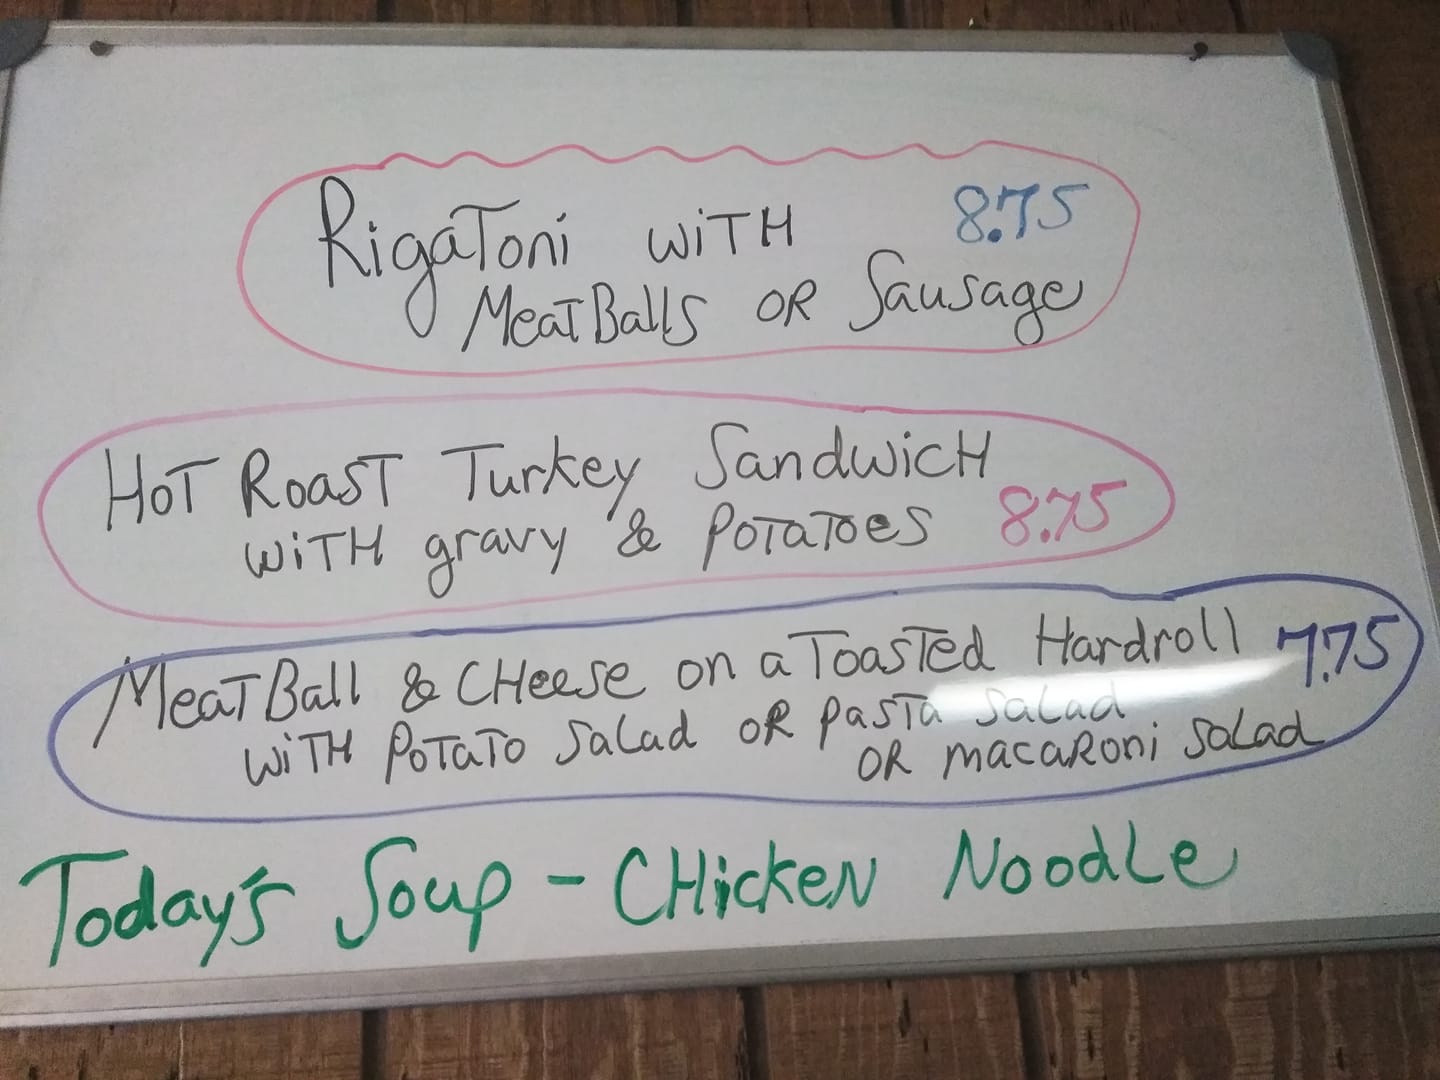 RigaToni WiTH 8.75
MeaTBalls OR Sausage
HoT RoasT Turkey SandwicH
WiTH gravy & PoTaToes 8.75
MeaTBall & CHeese on a ToasTed Hardroll 7.75
WiTH PoTaTo Salad OR PasTa Salad
OR macaRoni Salad
Today's Soup - CHicken Noodle